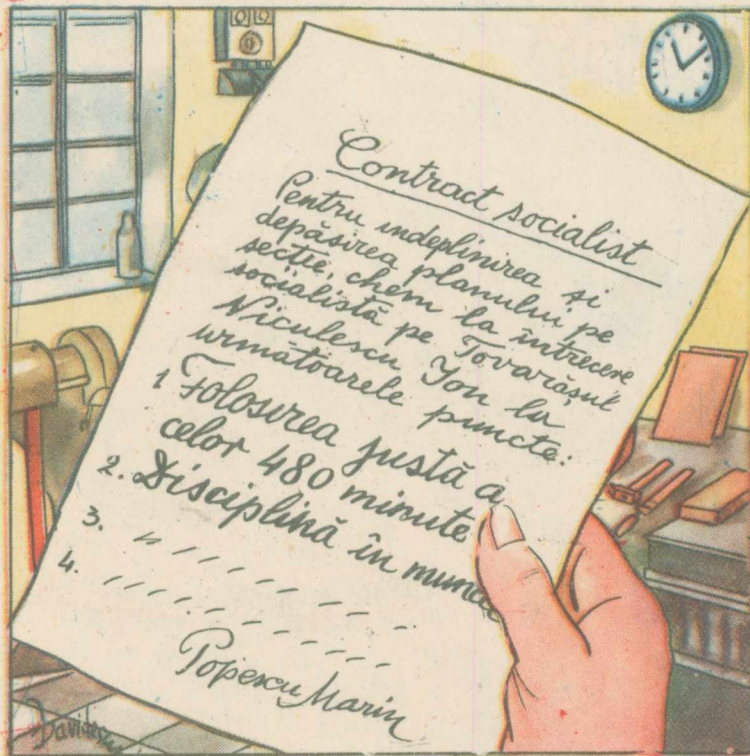 Contract socialist
Pentru indeplinirea si
depăsirea planului pe
sectie, chem la întrecere
socialistă pe Tovarăsul
Niculescu Ion la
urmatoarele puncte:
1 Folosirea justă a
celor 480 minute
2. Disciplină în muncă
3.
4.
Popescu Marin